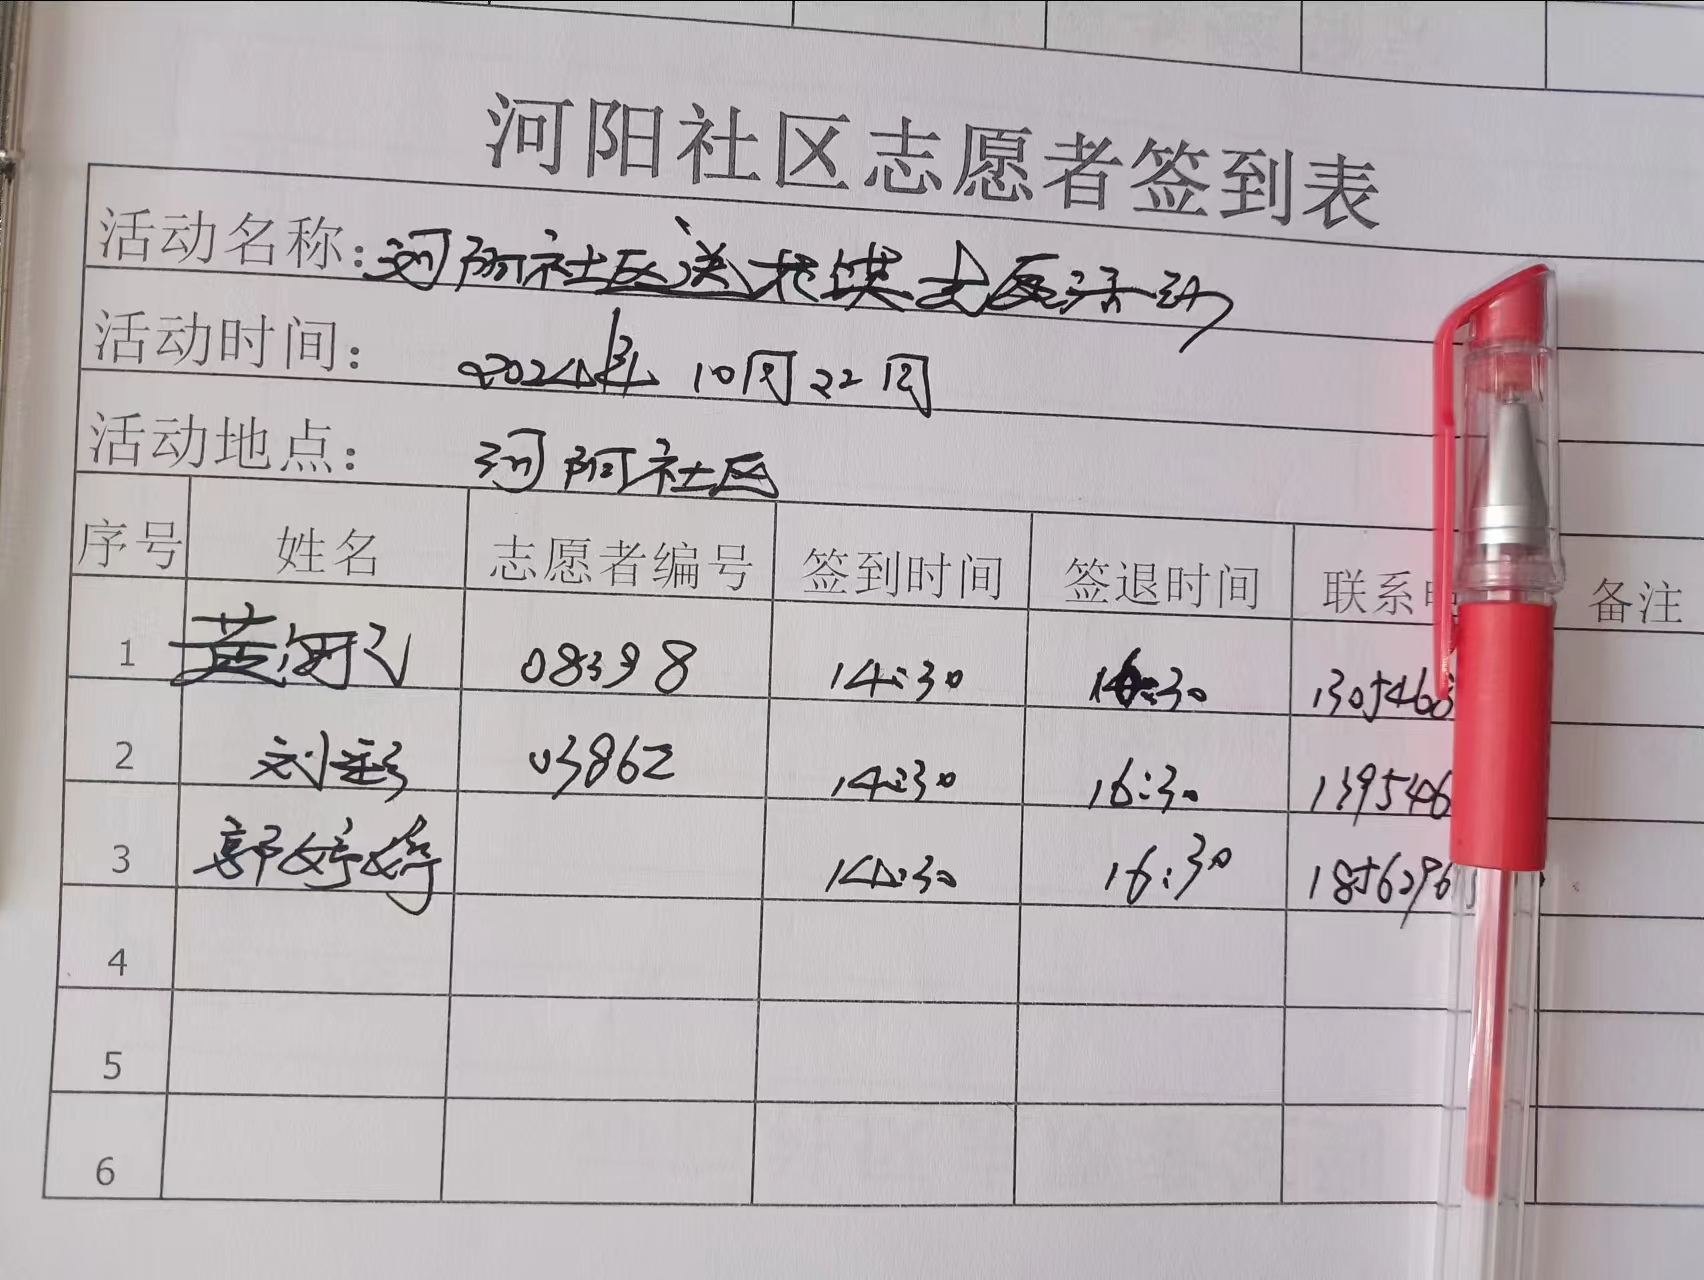 河阳社区志愿者签到表
活动名称：河阿社区送
活动时间：2024年10月22日
活动地点：河阿社区
序号 姓名 志愿者编号 签到时间 签退时间 联系 备注
1 08398 14:30 16:30 1305468
2 刘彩 03862 14:30 16:30 1395406
3 郭婷婷 14:30 16:30 1856296
4
5
6